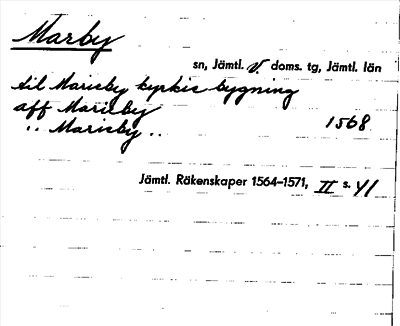 Marby
sn, Jämtl. v. doms. tg, Jämtl. län
til Marieby kyrkis bygning
aff Marieby
,, Marieby ,, 1568
Jämtl. Räkenskaper 1564–1571, II s. 41